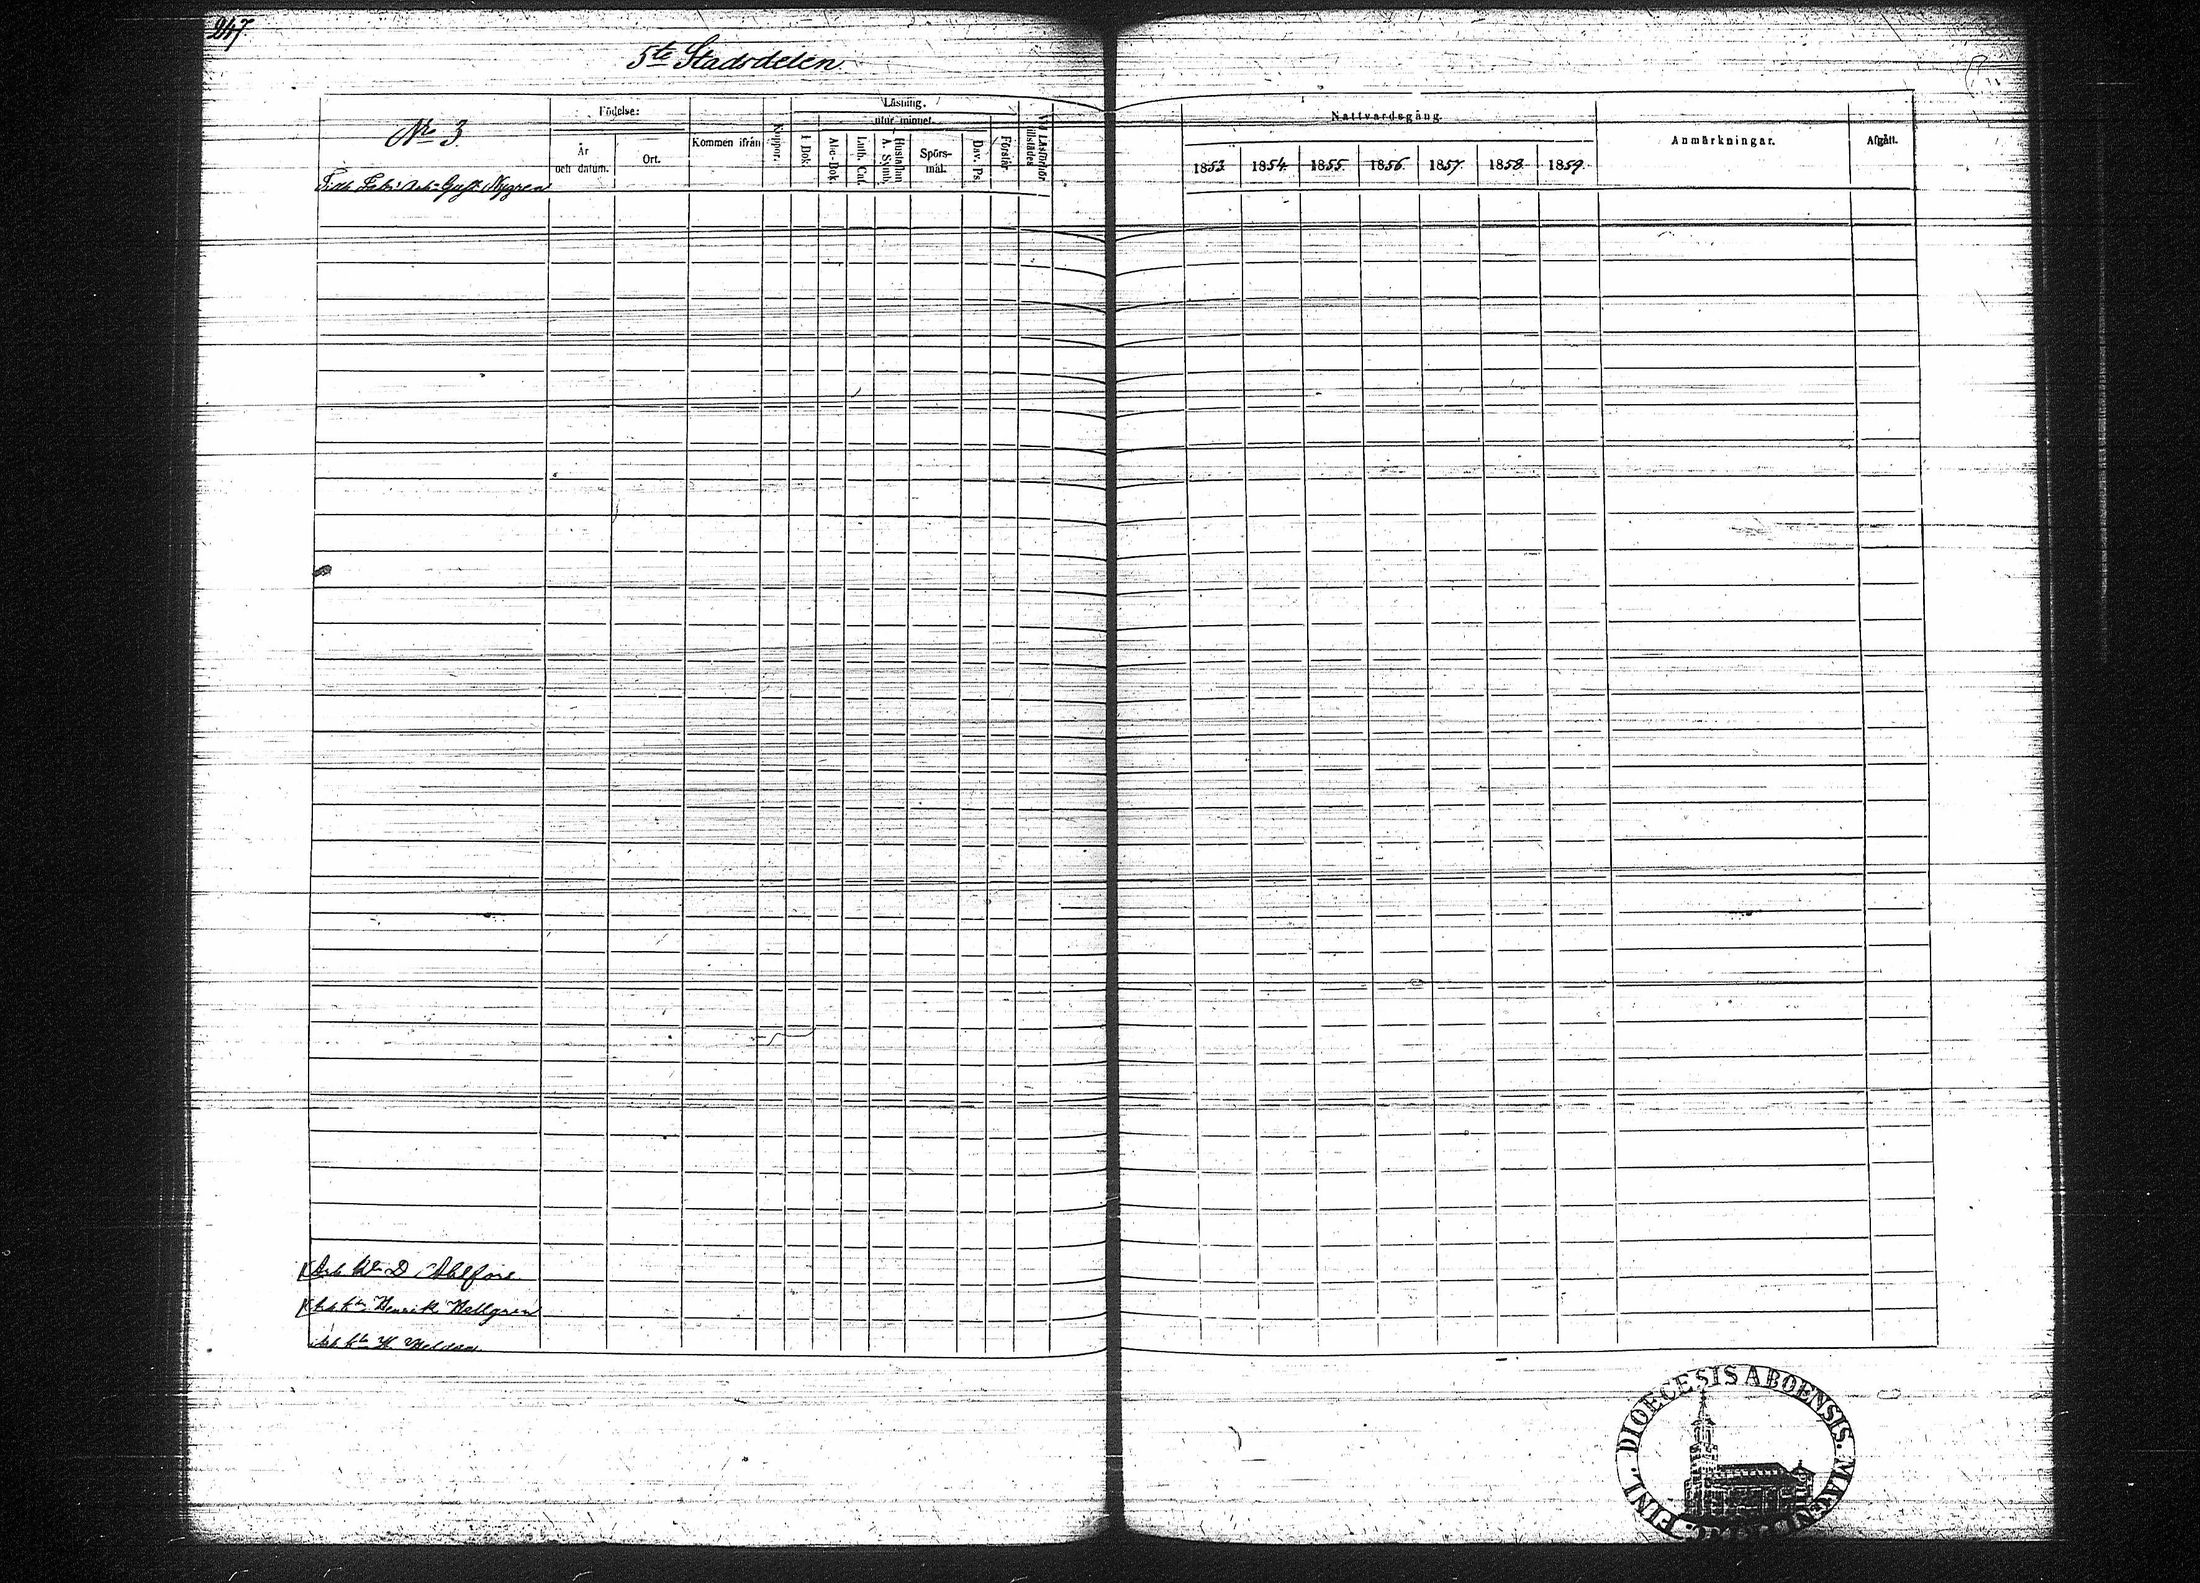 247
5te Stadsdelen.
No 3.
Födelse:
År och datum.
Ort.
Kommen ifrån
Koppor.
Läsning.
utur minnet.
I Bok
Abc-Bok
Luth. Cat.
Hustaflan A. Symb.
Spörsmål.
Dav. Ps.
Förstår.
Vid Läsförhör tillstädes
Nattvardsgång.
1853. 1854. 1855. 1856. 1857. 1858. 1859.
Anmärkningar.
Afgått.
Gust. Nygren
Ahlfors.
Henrik Hellgren
DIOECESIS ABOENSIS. MAGNI FINL.